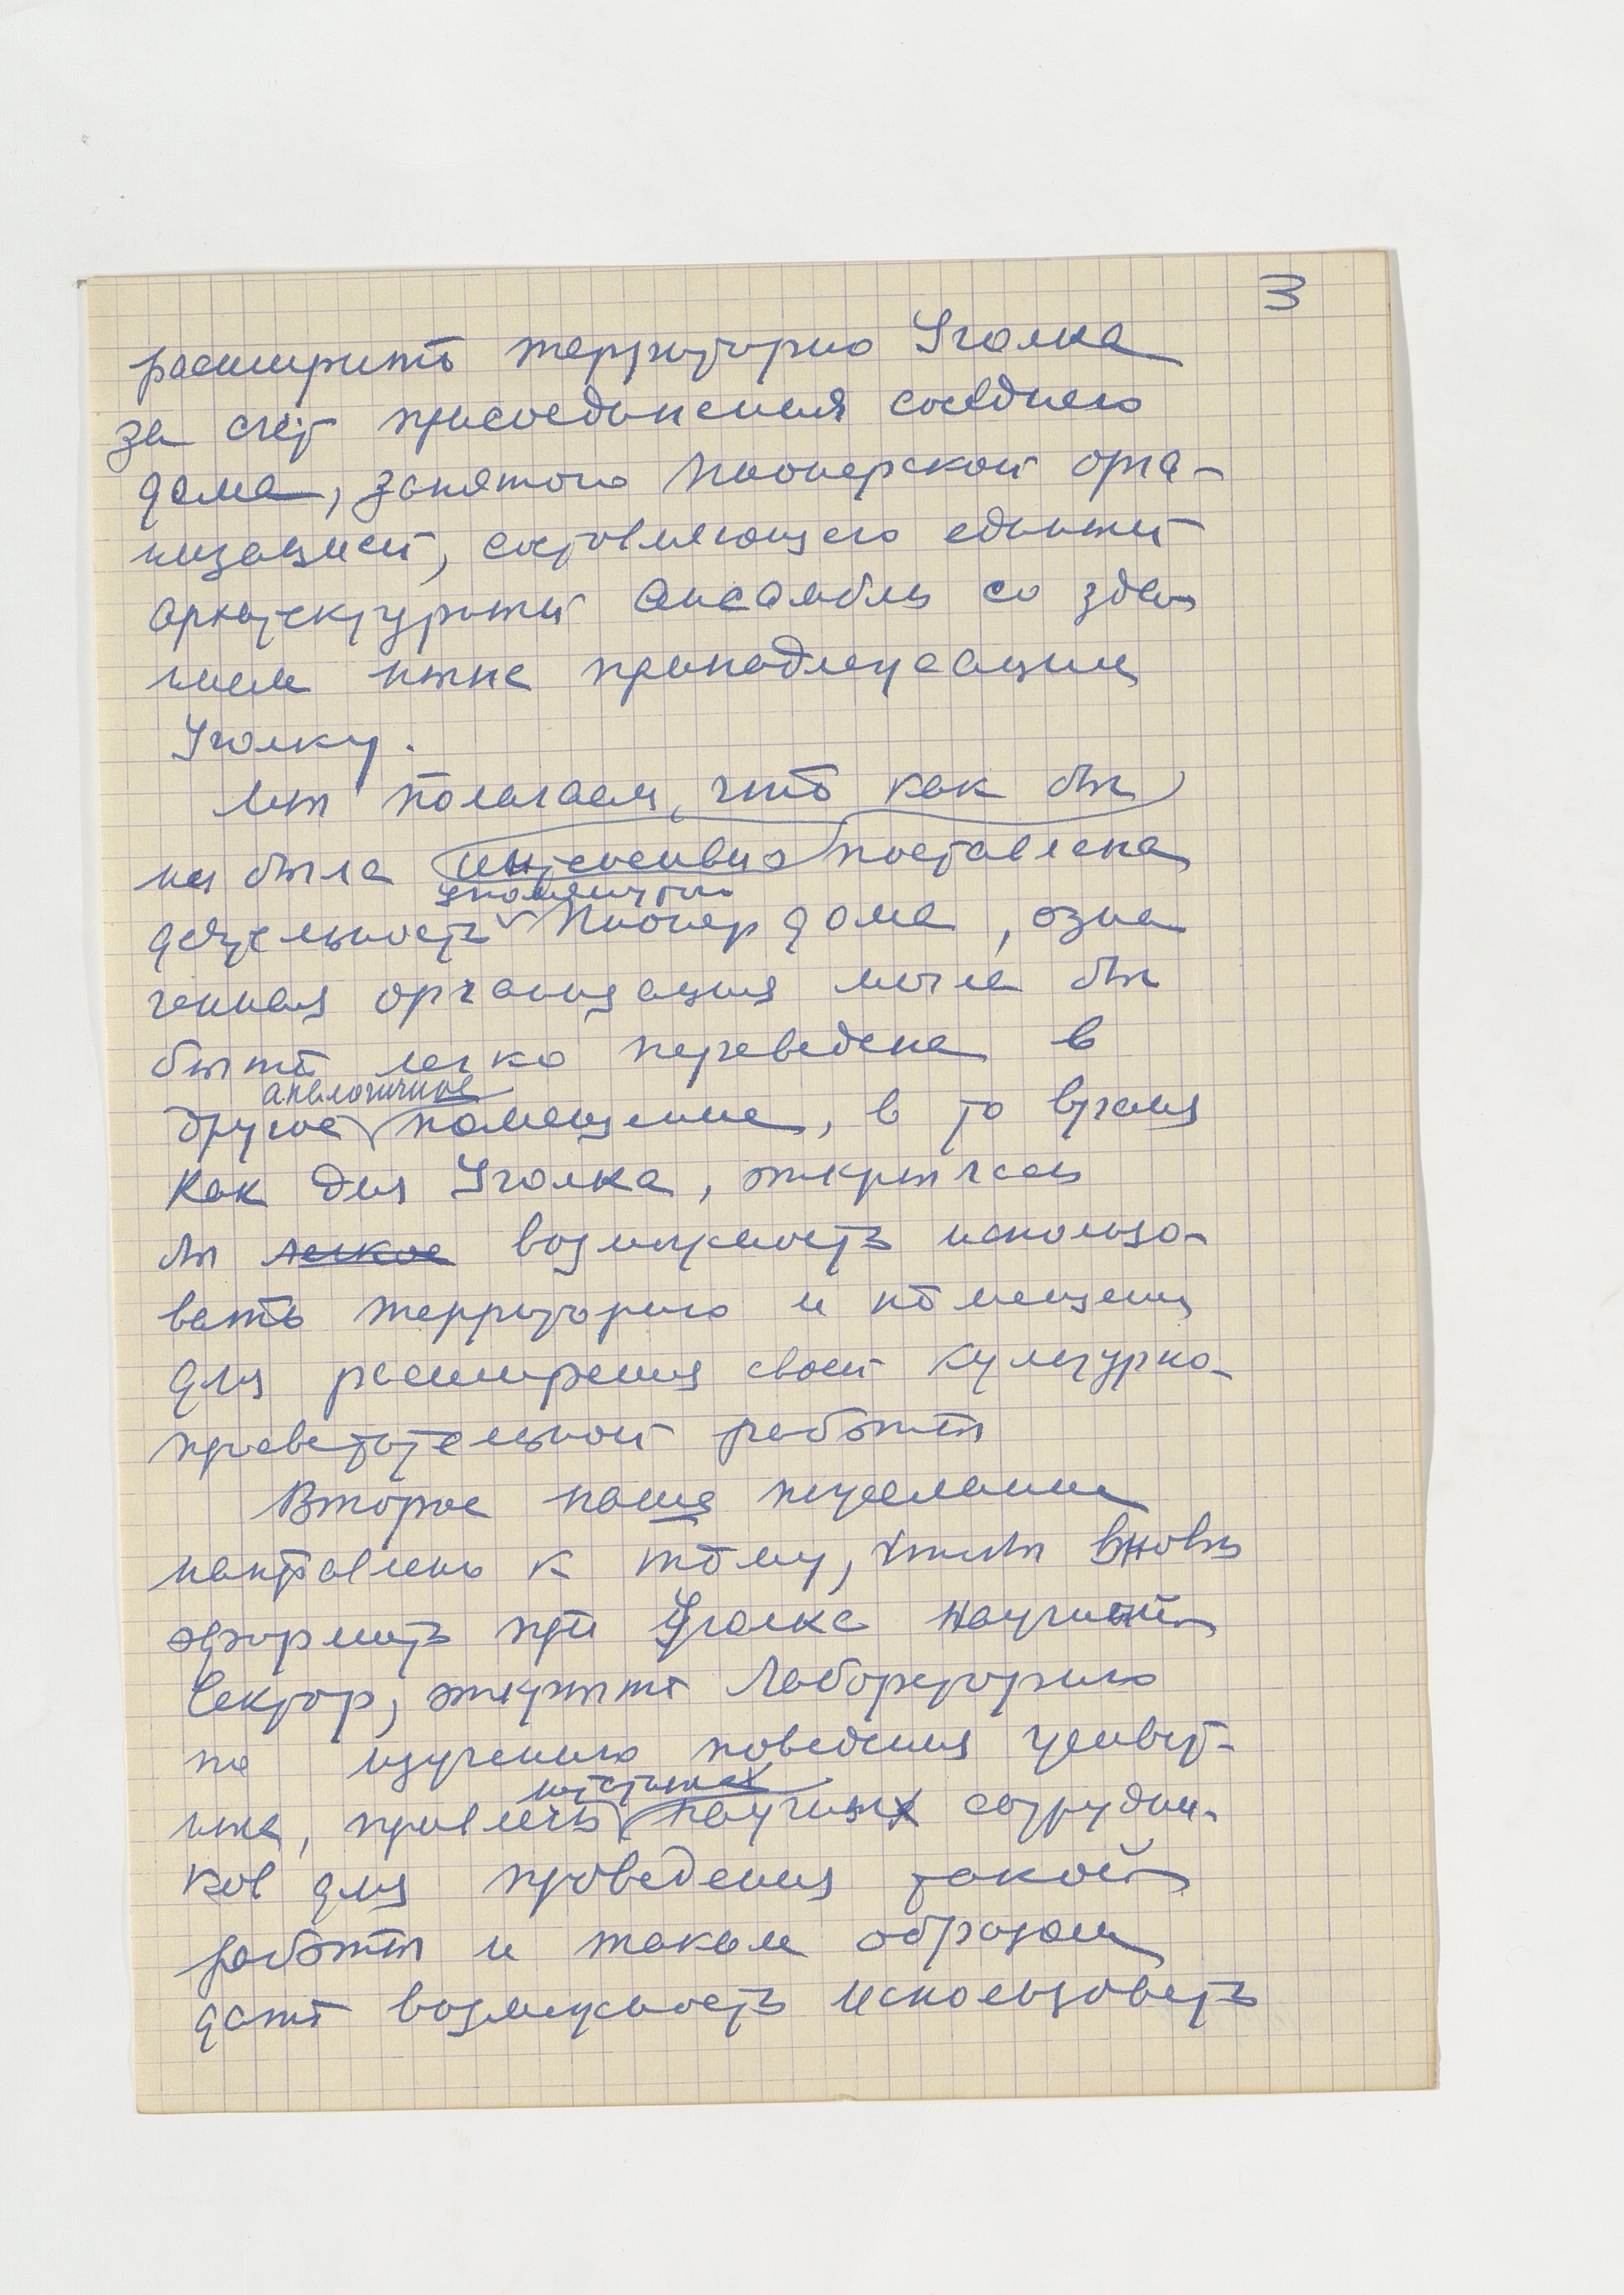 3
расширить территорию Уголка
за счёт присоединения соседнего
дома, занятого Пионерской орга-
низацией, составляющего единый
архитектурный ансамбль со зда-
нием ныне принадлежащим
Уголку.
Мы полагаем, что как бы
ни была интенсивно поставлена
упомянутого
деятельность Пионер дома, озна
ченная организация могла бы
быть легко переведена в
аналогичное
другое помещение, в то время
как для Уголка, открылась
бы легкое возможность использо-
вать территорию и помещения
для расширения своей культурно-
просветительной работы
Второе наше пожелание
направлено к тому, чтобы вновь
оформить при Уголке Научный
Сектор, открыть Лабораторию
по изучению поведения животт-
ных, привлечь научных сотрудни-
ков для проведения такой
работы и таким образом
дать возможность использовать